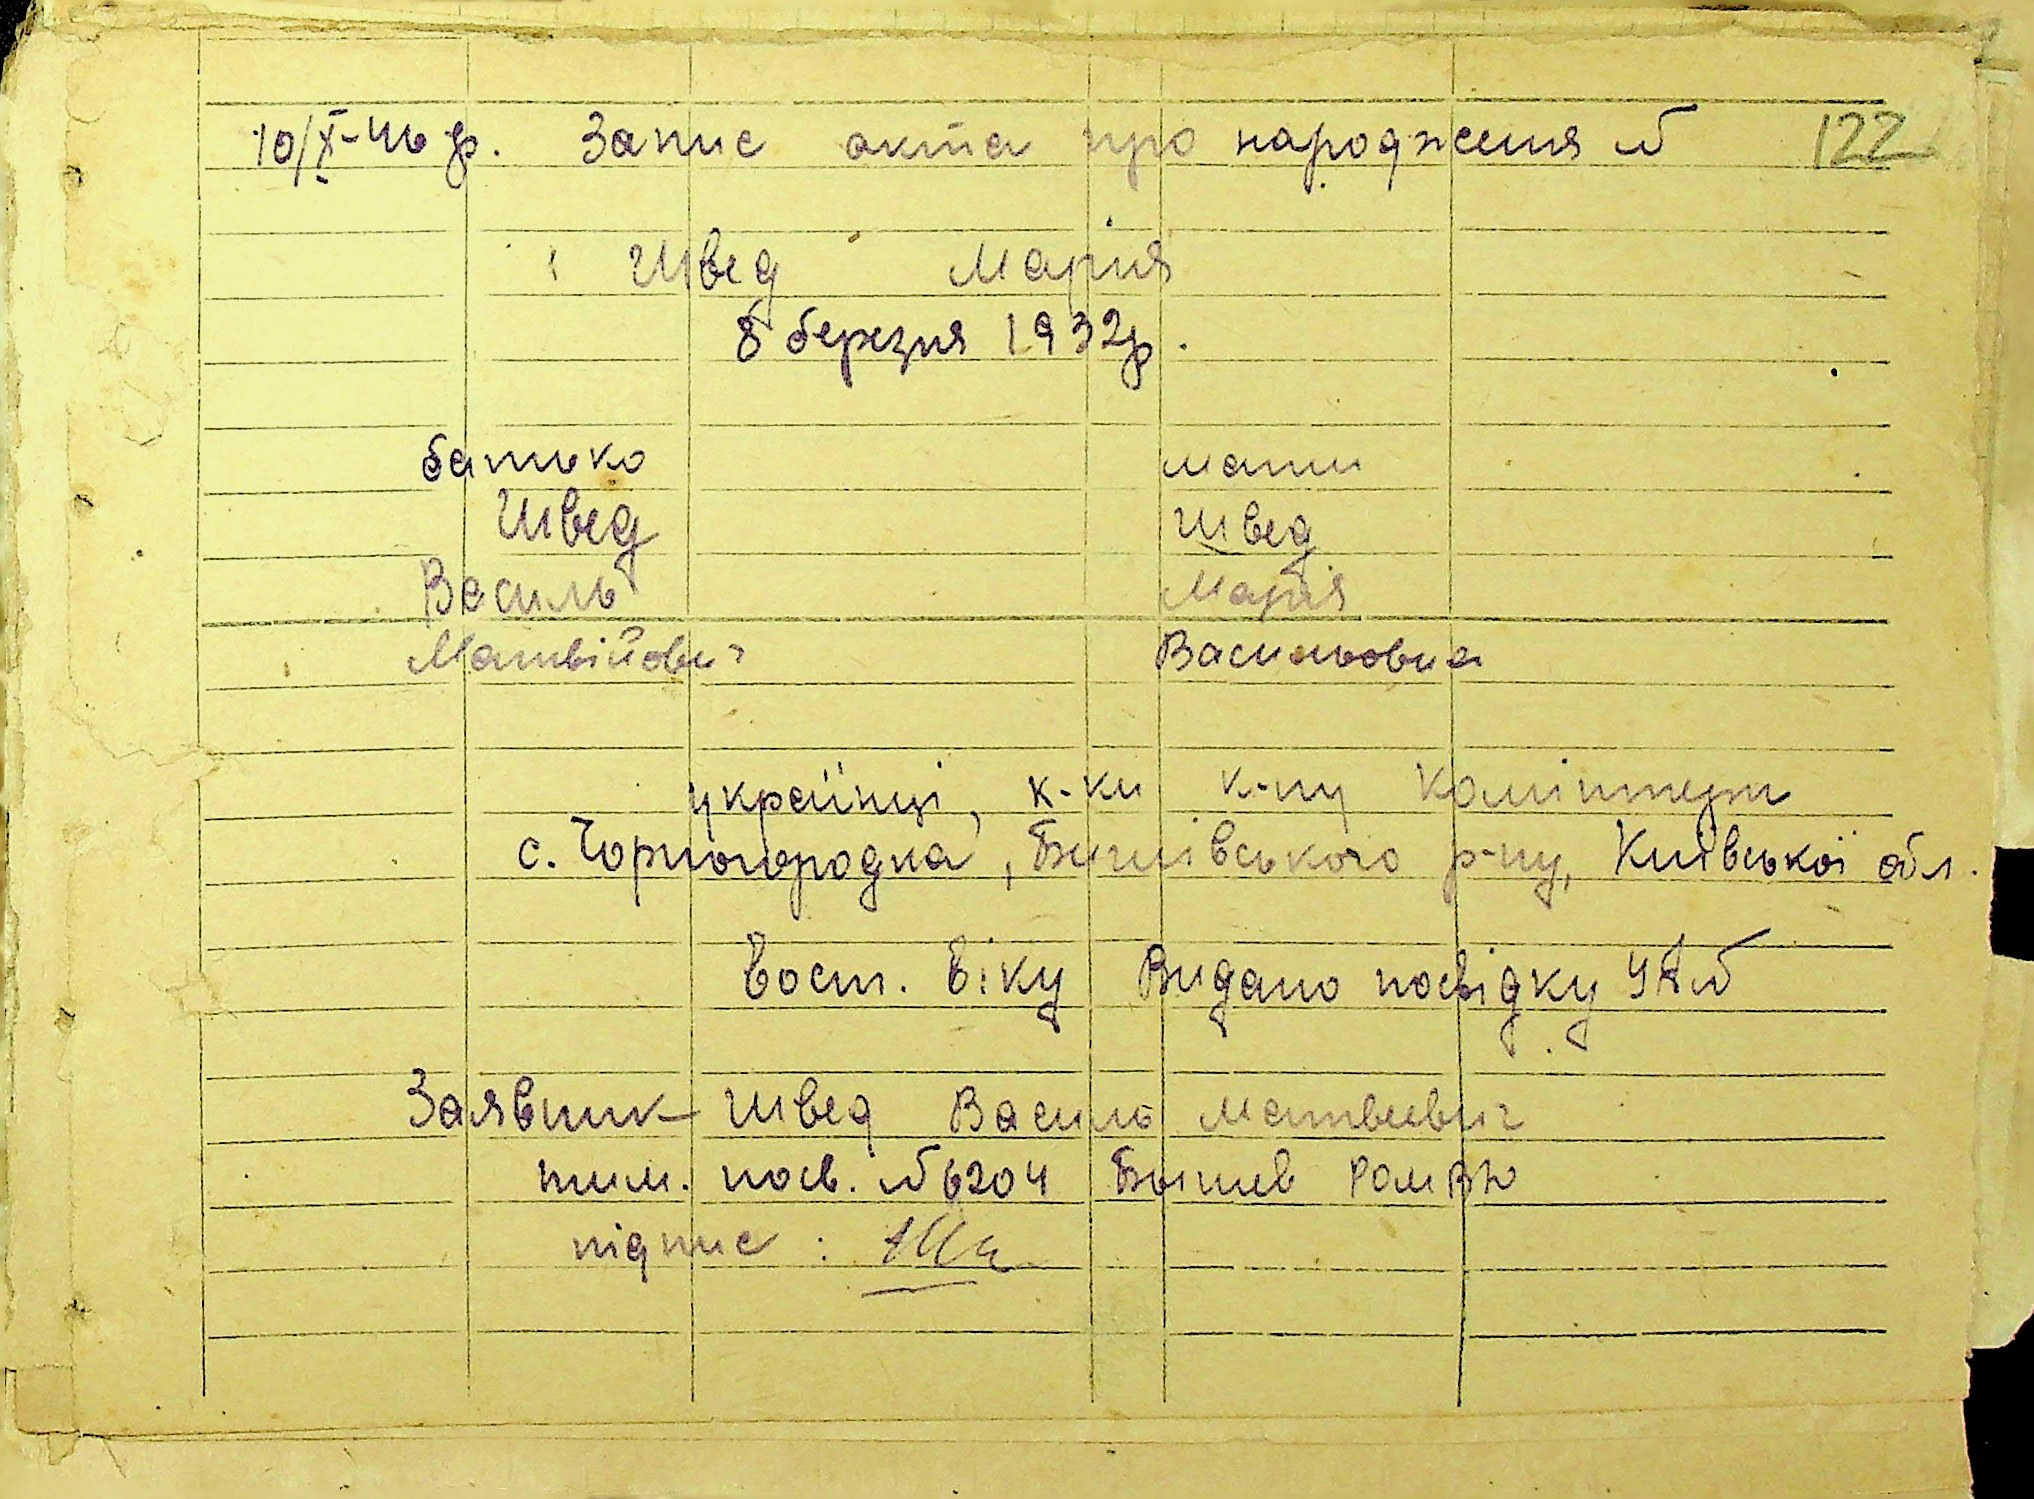 10/X-46 р. Запис акта про народження № 122
Швед Марія
8 березня 1932р.
батько мати
Швед Швед
Василь Марія
Матвійович Васильовна
українці, к-ки к-пу Комінтерн
с. Чорногородка, Бишівського р-ну, Київської обл.
Вост. віку Видано посвідку УА №
Заявник Швед Василь Матвеевич
тим. посв. № 6204 Бышев РОМВД
підпис: